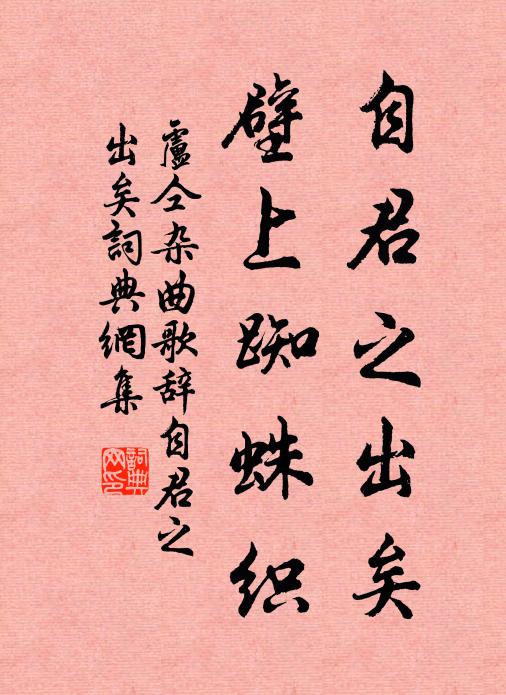 自君之出矣
壁上蜘蛛织
盧仝杂曲歌辞自君之
出矣詞典網集
詞典
网印